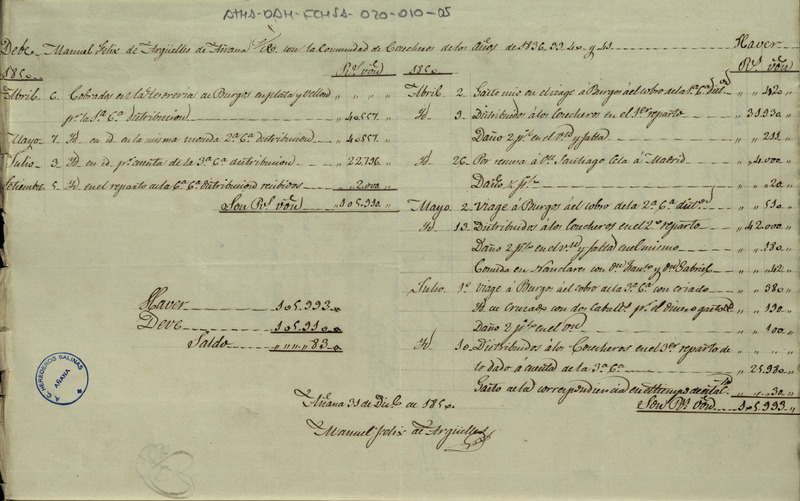 ATHA-DAH-FCHSA-020-010-05
Debe Manuel Felix de Argüelles de Añana con la Comunidad de Coucheros de los años de 1836, 39, 40 y 41 Haver
1850 Rs. von 1850 Rs. von
Abril 6 Cobrados en la tesoreria de Burgos en plata y vellon " " " "
pr. la 1ª Cª distribucion " 40.557 "
Mayo 7 Id en id. en la misma moneda 2ª Cª distribucion " 40.557 "
Julio 3 Id en id. pr. cuenta de la 3ª Cª distribucion " 22.796 "
Setiembre 5 Id en el reparto de la 6ª Cª distribucion recibidos " 2.000 "
Son Rs. von 105.910 "
Abril 2 Gasto mio en el viage á Burgos al cobro de la 1ª Cª " " 420 "
Id 9 Distribuidos á los Coucheros en el 1er reparto " 31930 "
Daño 2 en el y falta " " 211
Id 26 Por remesa á Santiago Cela á Madrid " " 4.000
Daño " " 20 "
Mayo 2 Viage á Burgos al cobro de la 2ª Cª " " 510 "
Id 13 Distribuidos á los Coucheros en el 2º reparto " 42.000 "
Daño 2 en el y falta en el mismo " " 180 "
Comida en Nanclares con y Gabriel " " 42
Julio 1º Viage á Burgos al cobro de la 3ª Cª con criado " " 380 "
Id un Cruzado con dos Caball. pr. el dinero " " 190 "
Daño 2 en el " " 100 "
Id 10 Distribuidos á los Coucheros en el 3er reparto de " " " "
lo dado á cuenta de la 3ª Cª " 25.980 "
Gasto de la correspondencia en " " 30 "
Son Rs. von 105.993 "
Haver 105.993 "
Deve 105.910 "
Saldo " " " 83 "
T. C. HEREDEROS SALINAS
AÑANA
Añana 31 de Dic. de 1850.
Manuel Felix de Argüelles